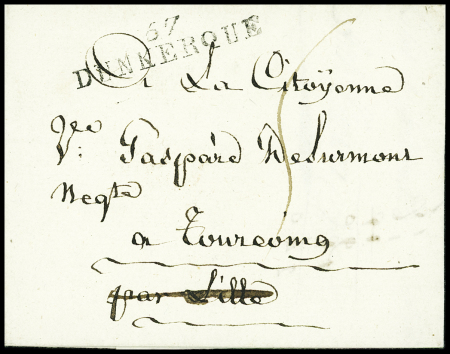 67
DUNKERQUE
A La Citoÿenne
Ve. Gaspard Desurmont
Negte
a Tourcoing
par Lille